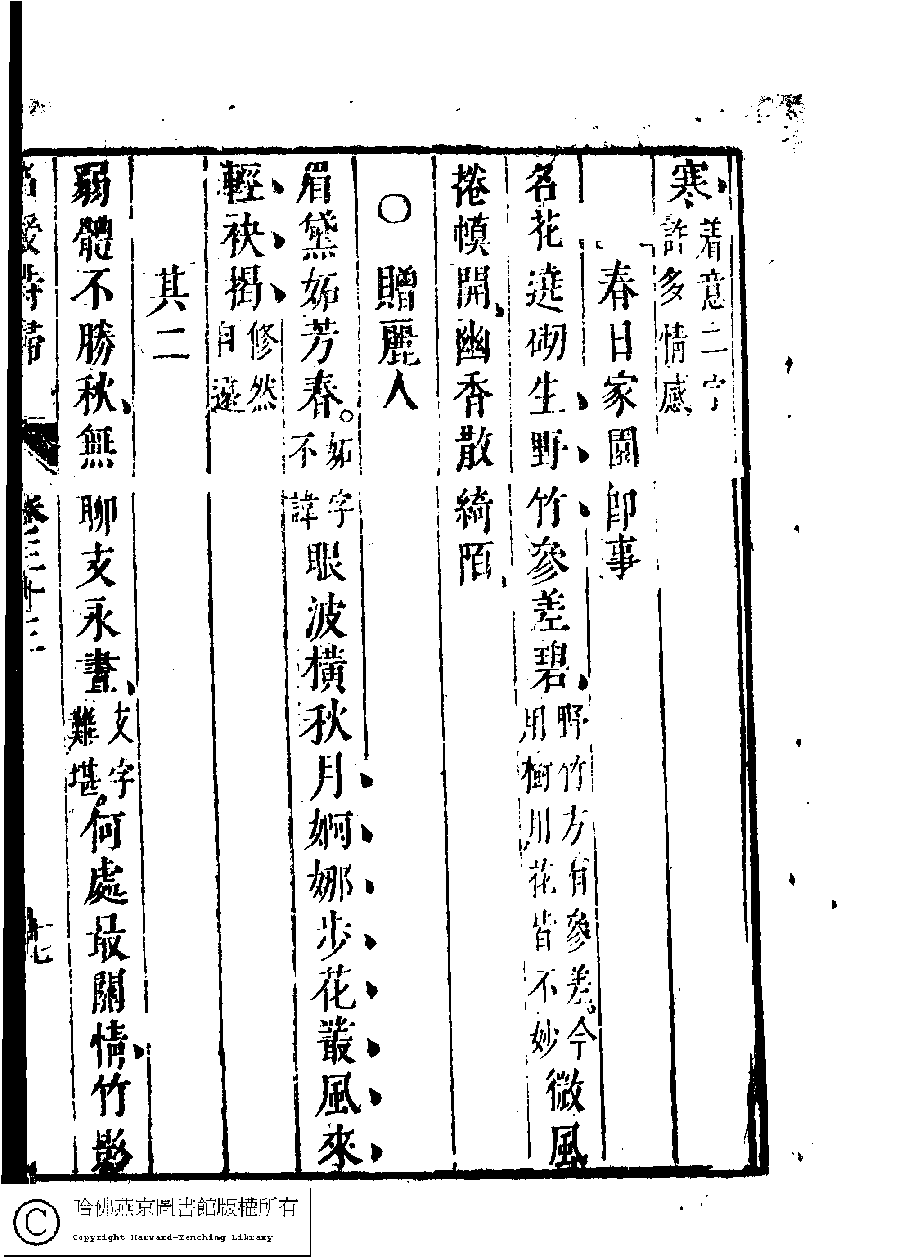 寒着意二字許多情感
春日家園卽事
名花遶砌生野竹參差碧野竹方有參差今用樹用花皆不妙微風
捲幙開幽香散綺陌
○贈麗人
眉黛妬芳春。妬字不諱眼波橫秋月婀娜步花叢風來
輕袂揚修然自遠
其二
弱體不勝秋無聊支永晝支字難堪何處最關情竹影
名媛詩歸 卷三十三 十七
哈佛燕京圖書館版權所有
Copyright Harvard-Yenching Library